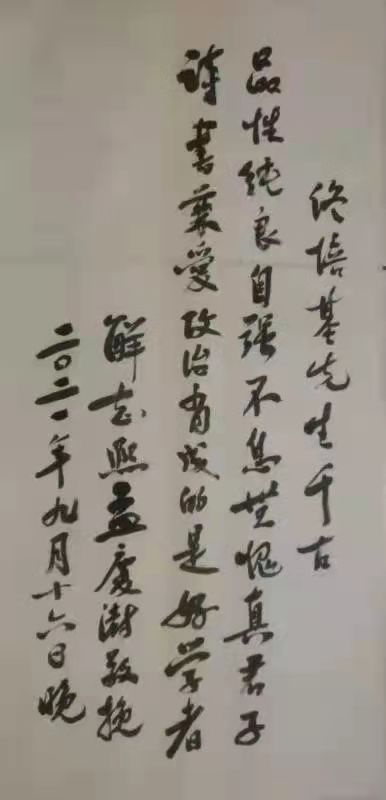 佟培基先生千古
品性纯良自强不息無愧真君子
诗書兼爱政治有成的是好学者
解志熙孟庆澍敬挽
二〇二一年九月十六日晚